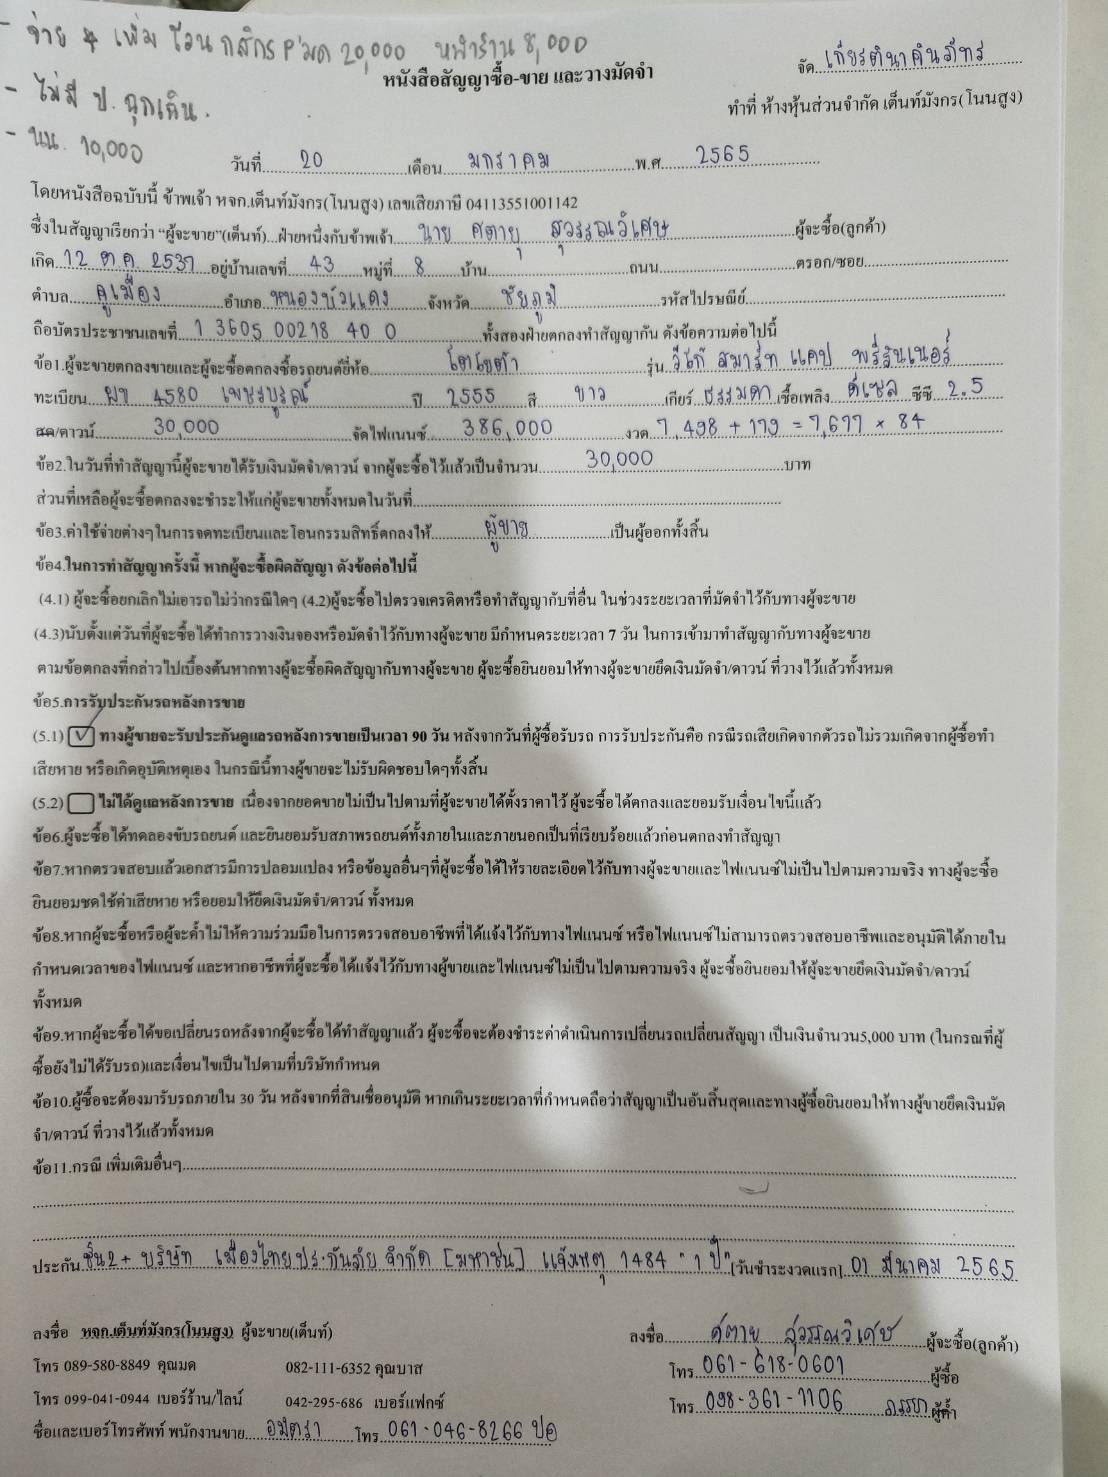 - จ่าย * เพิ่ม โอน กสิกร P'มด 20,000 หน้าร้าน 8,000
หนังสือสัญญาซื้อ-ขาย และวางมัดจำ
จัด เกียรตินาคินภัทร
- ไม่มี ป. ฉุกเฉิน.
ทำที่ ห้างหุ้นส่วนจำกัด เต็นท์มังกร(โนนสูง)
- นน. 10,000
วันที่ 20 เดือน มกราคม พ.ศ. 2565
โดยหนังสือฉบับนี้ ข้าพเจ้า หจก.เต็นท์มังกร(โนนสูง) เลขเสียภาษี 04113551001142
ซึ่งในสัญญาเรียกว่า “ผู้จะขาย”(เต็นท์)...ฝ่ายหนึ่งกับข้าพเจ้า นาย ศตายุ สุวรรณวิเศษ ผู้จะซื้อ(ลูกค้า)
เกิด 12 ต.ค. 2537 อยู่บ้านเลขที่ 43 หมู่ที่ 8 บ้าน ถนน ตรอก/ซอย
ตำบล คูเมือง อำเภอ หนองบัวแดง จังหวัด ชัยภูมิ รหัสไปรษณีย์
ถือบัตรประชาชนเลขที่ 1 3605 00218 40 0 ทั้งสองฝ่ายตกลงทำสัญญากัน ดังข้อความต่อไปนี้
ข้อ1.ผู้จะขายตกลงขายและผู้จะซื้อตกลงซื้อรถยนต์ยี่ห้อ โตโยต้า รุ่น วีโก้ สมาร์ท แคป พรีรันเนอร์
ทะเบียน ผข 4580 เพชรบูรณ์ ปี 2555 สี ขาว เกียร์ ธรรมดา เชื้อเพลิง ดีเซล ซีซี 2.5
สด/ดาวน์ 30,000 จัดไฟแนนซ์ 386,000 งวด 7,498 + 179 = 7,677 × 84
ข้อ2.ในวันที่ทำสัญญานี้ผู้จะขายได้รับเงินมัดจำ/ดาวน์ จากผู้จะซื้อไว้แล้วเป็นจำนวน 30,000 บาท
ส่วนที่เหลือผู้จะซื้อตกลงจะชำระให้แก่ผู้จะขายทั้งหมดในวันที่
ข้อ3.ค่าใช้จ่ายต่างๆในการจดทะเบียนและโอนกรรมสิทธิ์ตกลงให้ ผู้ขาย เป็นผู้ออกทั้งสิ้น
ข้อ4.ในการทำสัญญาครั้งนี้ หากผู้จะซื้อผิดสัญญา ดังข้อต่อไปนี้
(4.1) ผู้จะซื้อยกเลิกไม่เอารถไม่ว่ากรณีใดๆ (4.2)ผู้จะซื้อไปตรวจเครดิตหรือทำสัญญากับที่อื่น ในช่วงระยะเวลาที่มัดจำไว้กับทางผู้จะขาย
(4.3)นับตั้งแต่วันที่ผู้จะซื้อได้ทำการวางเงินจองหรือมัดจำไว้กับทางผู้จะขาย มีกำหนดระยะเวลา 7 วัน ในการเข้ามาทำสัญญากับทางผู้จะขาย
ตามข้อตกลงที่กล่าวไปเบื้องต้นหากทางผู้จะซื้อผิดสัญญากับทางผู้จะขาย ผู้จะซื้อยินยอมให้ทางผู้จะขายยึดเงินมัดจำ/ดาวน์ ที่วางไว้แล้วทั้งหมด
ข้อ5.การรับประกันรถหลังการขาย
(5.1) ทางผู้ขายจะรับประกันดูแลรถหลังการขายเป็นเวลา 90 วัน หลังจากวันที่ผู้ซื้อรับรถ การรับประกันคือ กรณีรถเสียเกิดจากตัวรถไม่รวมเกิดจากผู้ซื้อทำ
เสียหาย หรือเกิดอุบัติเหตุเอง ในกรณีนี้ทางผู้ขายจะไม่รับผิดชอบใดๆทั้งสิ้น
(5.2) ไม่ได้ดูแลหลังการขาย เนื่องจากยอดขายไม่เป็นไปตามที่ผู้จะขายได้ตั้งราคาไว้ ผู้จะซื้อได้ตกลงและยอมรับเงื่อนไขนี้แล้ว
ข้อ6.ผู้จะซื้อได้ทดลองขับรถยนต์ และยินยอมรับสภาพรถยนต์ทั้งภายในและภายนอกเป็นที่เรียบร้อยแล้วก่อนตกลงทำสัญญา
ข้อ7.หากตรวจสอบแล้วเอกสารมีการปลอมแปลง หรือข้อมูลอื่นๆที่ผู้จะซื้อได้ให้รายละเอียดไว้กับทางผู้จะขายและไฟแนนซ์ไม่เป็นไปตามความจริง ทางผู้จะซื้อ
ยินยอมชดใช้ค่าเสียหาย หรือยอมให้ยึดเงินมัดจำ/ดาวน์ ทั้งหมด
ข้อ8.หากผู้จะซื้อหรือผู้จะค้ำไม่ให้ความร่วมมือในการตรวจสอบอาชีพที่ได้แจ้งไว้กับทางไฟแนนซ์ หรือไฟแนนซ์ไม่สามารถตรวจสอบอาชีพและอนุมัติได้ภายใน
กำหนดเวลาของไฟแนนซ์ และหากอาชีพที่ผู้จะซื้อได้แจ้งไว้กับทางผู้ขายและไฟแนนซ์ไม่เป็นไปตามความจริง ผู้จะซื้อยินยอมให้ผู้จะขายยึดเงินมัดจำ/ดาวน์
ทั้งหมด
ข้อ9.หากผู้จะซื้อได้ขอเปลี่ยนรถหลังจากผู้จะซื้อได้ทำสัญญาแล้ว ผู้จะซื้อจะต้องชำระค่าดำเนินการเปลี่ยนรถเปลี่ยนสัญญา เป็นเงินจำนวน5,000 บาท (ในกรณที่ผู้
ซื้อยังไม่ได้รับรถ)และเงื่อนไขเป็นไปตามที่บริษัทกำหนด
ข้อ10.ผู้ซื้อจะต้องมารับรถภายใน 30 วัน หลังจากที่สินเชื่ออนุมัติ หากเกินระยะเวลาที่กำหนดถือว่าสัญญาเป็นอันสิ้นสุดและทางผู้ซื้อยินยอมให้ทางผู้ขายยึดเงินมัด
จำ/ดาวน์ ที่วางไว้แล้วทั้งหมด
ข้อ11.กรณี เพิ่มเติมอื่นๆ
ประกัน ชั้น2+ บริษัท เมืองไทยประกันภัย จำกัด [มหาชน] แจ้งเหตุ 1484 "1 ปี" [วันชำระงวดแรก] 01 มีนาคม 2565
ลงชื่อ หจก.เต็นท์มังกร(โนนสูง) ผู้จะขาย(เต็นท์) ลงชื่อ ศตายุ สุวรรณวิเศษ ผู้จะซื้อ(ลูกค้า)
โทร 089-580-8849 คุณมด 082-111-6352 คุณบาส โทร. 061-618-0601 ผู้ซื้อ
โทร 099-041-0944 เบอร์ร้าน/ไลน์ 042-295-686 เบอร์แฟกซ์ โทร. 098-361-1106 ภรรยา ผู้ค้ำ
ชื่อและเบอร์โทรศัพท์ พนักงานขาย อมิตรา โทร. 061-046-8266 ปอ